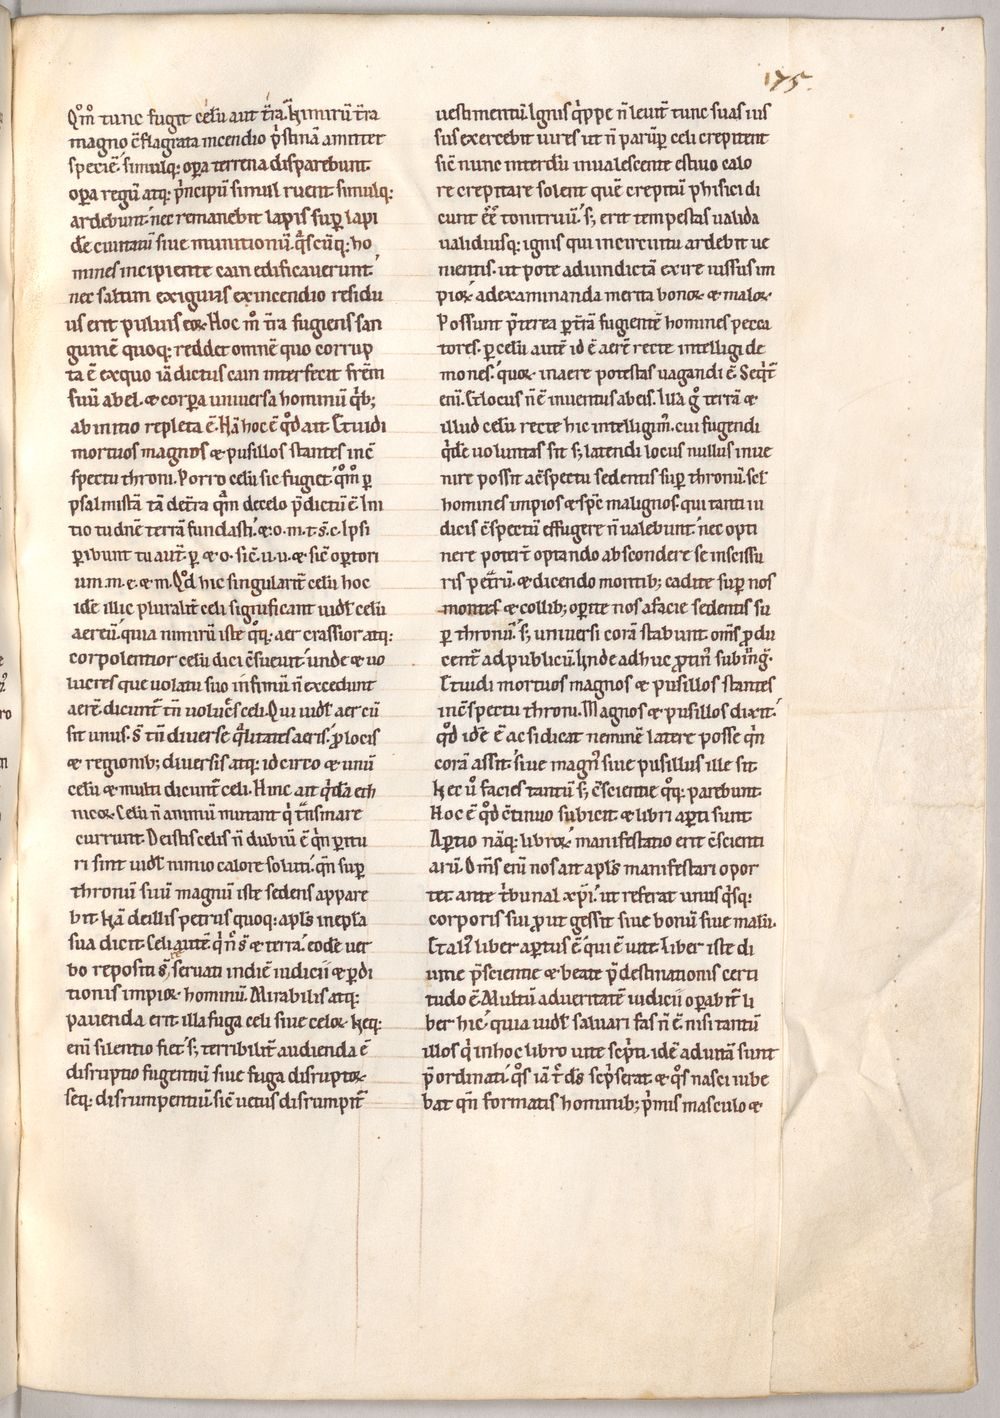 175.
Qm̄o tunc fugit celū aut t̄ra. Nimirū t̄ra
magno c̄flagrata incendio p̍stinā amittet
speciē. simulq; op̲a terrena disparebunt.
op̲a regū atq; p̍ncipū simul ruent. simulq;
ardebunt. nec remanebit lapis sup̲ lapi
dē ciuitatū siue munitionū. q̍scūq; ho
mines incipiente cain edificauerunt.
nec saltim exiguus ex incendio residu
us erit puluis eoꝝ. Hoc m̊ t̄ra fugiens san
guinē quoq; reddet omnē quo corrup
ta ē ex quo iā dictus cain interfecit fr̄em
suū abel. ⁊ corp̲a uniuersa hominū q̍b;
ab initio repleta ē. Nā hoc ē qd̊ ait. Et uidi
mortuos magnos ⁊ pusillos stantes in c̄
spectu throni. Porro celū sic fugiet. qm̊o p̲
psalmistā tā de t̄ra quā de celo p̄dictū ē. Ini
tio tu dn̄e terrā fundasti. ⁊. o. m. t. s̄. c. Ipsi
p̲ibunt tu aut̄. p̲. ⁊ o. sic̄. u. u. ⁊ sic̄ op̲tori
um. m. e. ⁊ m. Qd̊ hic singularit̄ celū hoc
idē illic pluralit̄ celi significant uidl̄ celū
aereū. quia nimirū iste qq̊; aer crassior atq;
corpolentior celū dici c̄sueuit. unde ⁊ uo
lucres que uolatu suo infimū n̄ excedunt
aerē. dicunt̄ tn̄ uolucr̄s celi. Qui uidl̄ aer cū
sit unus. s̄ tn̄ diuerse q̍litates aeris. p̱ locis
⁊ regionib; diuersis atq; idcirco ⁊ unū
celū ⁊ multi dicunt̄ celi. Hinc ait q̍dā eth
nicoꝝ. Celū n̄ animū mutant q̍ t̄ns mare
currunt. De istis celis n̄ dubiū ē qn̄ p̲itu
ri sint uidl̄ nimio calore soluti. qn̄ sup̲
thronū suū magnū iste sedens appare
bit. Nā de illis petrus quoq; apl̄s in ep̄la
sua dicit. Celi autē q̍ nc̊ s̄ ⁊ terra. eodē uer
bo repositi s̄. seruati in diē iudicii ⁊ p̲di
tionis impioꝝ hominū. Mirabilis atq;
pauenda erit illa fuga celi siue celoꝝ. Neq;
eni silentio fiet. s; terribilit̄ audienda ē
disruptio fugientiū siue fuga disruptoꝝ
seq; disrumpentiū. sic̄ uetus disrumpit̄
uestimentū. Ignis q̍ppe n̄ leuit̄ tunc suas ius
sus exercebit uires ut n̄ parūp̲ celi crepitent
sic̄ nunc interdū inualescente estiuo calo
re crepitare solent quē crepitū phisici di
cunt eē̄ tonitruū. s; erit tempestas ualida
ualidiusq; ignis qui in circuitu ardebit ue
nientis. ut pote ad uindictā exire iussus im
pioꝝ ad examinanda merita bonoꝝ ⁊ maloꝝ.
Possunt p̄terea p̲ t̄rā fugientē homines pecca
tores. p̲ celū autē id ē aerē recte intelligi de
mones. quoꝝ in aere potestas uagandi ē. Seq̍t̄
eni. Et locus n̄ ē inuentus ab eis. Illā g̊ terrā ⁊
illud celū recte hic intelligim᷒. cui fugiendi
q̍de uoluntas sit s; latendi locus nullus inue
niri possit a c̄spectu sedentis sup̲ thronū. scl̄
homines impios ⁊ spc̄ malignos. qui tanti iu
dicis c̄spectū effugere n̄ ualebunt. nec opti
nere poter̄t optando abscondere se in scissu
ris petrarū. ⁊ dicendo montib; cadite sup̲ nos
montes ⁊ collib; op̲ite nos a facie sedentis su
p̲ thronū. s; uniuersi corā stabunt om̄s p̱du
cent̄ ad publicū. Unde adhuc p̱tin᷒ subiūg̊.
Et uidi mortuos magnos ⁊ pusillos stantes
in c̄spectu throni. Magnos ⁊ pusillos dixit.
qd̊ idē ē ac si dicat neminē latere posse qn̄
corā assit. siue magn᷒ siue pusillus ille sit.
Nec ů facies tantū s; c̄scientie qq̊; parebunt.
Hoc ē qd̊ c̄tinuo subicit. ⁊ libri ap̲ti sunt.
Ap̲tio nāq; libroꝝ. manifestatio erit c̄scienti
arū. Om̄s eni nos ait apl̄s manifestari opor
tet ante t̍bunal xp̄i. ut referat unus q̍sq;
corporis sui p̱ut gessit siue bonū siue malū.
Et ali᷒ liber ap̲tus ē qui ē uite. Liber iste di
uine p̄scientie ⁊ beate p̄destinationis certi
tudo ē. Multū ad ueritatē iudicii op̲abit̄ li
ber hic. quia uidl̄ saluari fas n̄ ē nisi tantū
illos q̍ in hoc libro uite sc̍pti. idē ad uitā sunt
p̄ordinati. q̊s iā t̍ d̄s sc̍pserat ⁊ q̊s nasci iube
bat qn̄ formatis hominib; p̍mis masculo ⁊